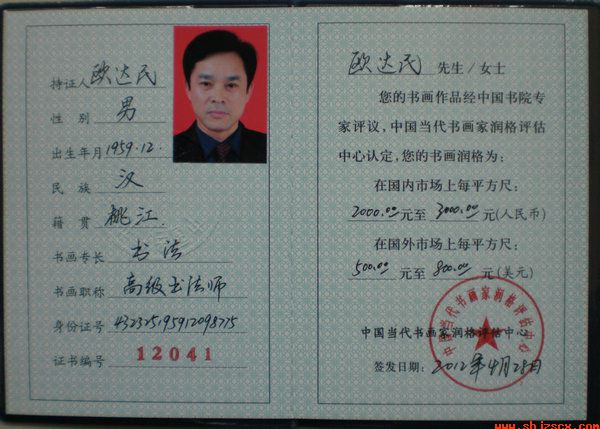 持证人 欧达民
性 别 男
出生年月 1959.12.
民 族 汉
籍 贯 桃江
书画专长 书法
书画职称 高级书法师
身份证号 432325195912098775
证书编号 12041
欧达民 先生/女士
您的书画作品经中国书院专
家评议,中国当代书画家润格评估
中心认定,您的书画润格为:
在国内市场上每平方尺:
2000.00元至 3000.00元(人民币)
在国外市场上每平方尺:
500.00元至 800.00元(美元)
中国当代书画家润格评估中心
中国当代书画家润格评估中心
签发日期: 2012年4月28日
www.shjzscx.com